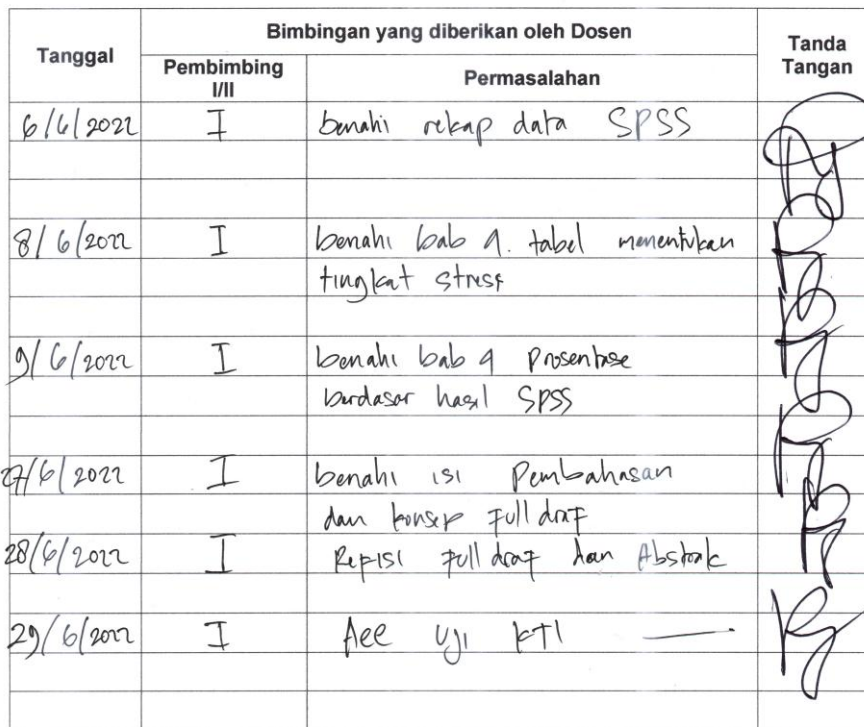 Tanggal
Bimbingan yang diberikan oleh Dosen
Tanda
Tangan
Pembimbing
I/II
Permasalahan
6/6/2022 I benahi rekap data SPSS
8/6/2022 I benahi bab 4. tabel menentukan
tingkat stress
9/6/2022 I benahi bab 4 Prosentase
berdasar hasil SPSS
27/6/2022 I benahi isi Pembahasan
dan konsep Full draf
28/6/2022 I Refisi Full draf dan Abstrak
29/6/2022 I Acc Uji KTI